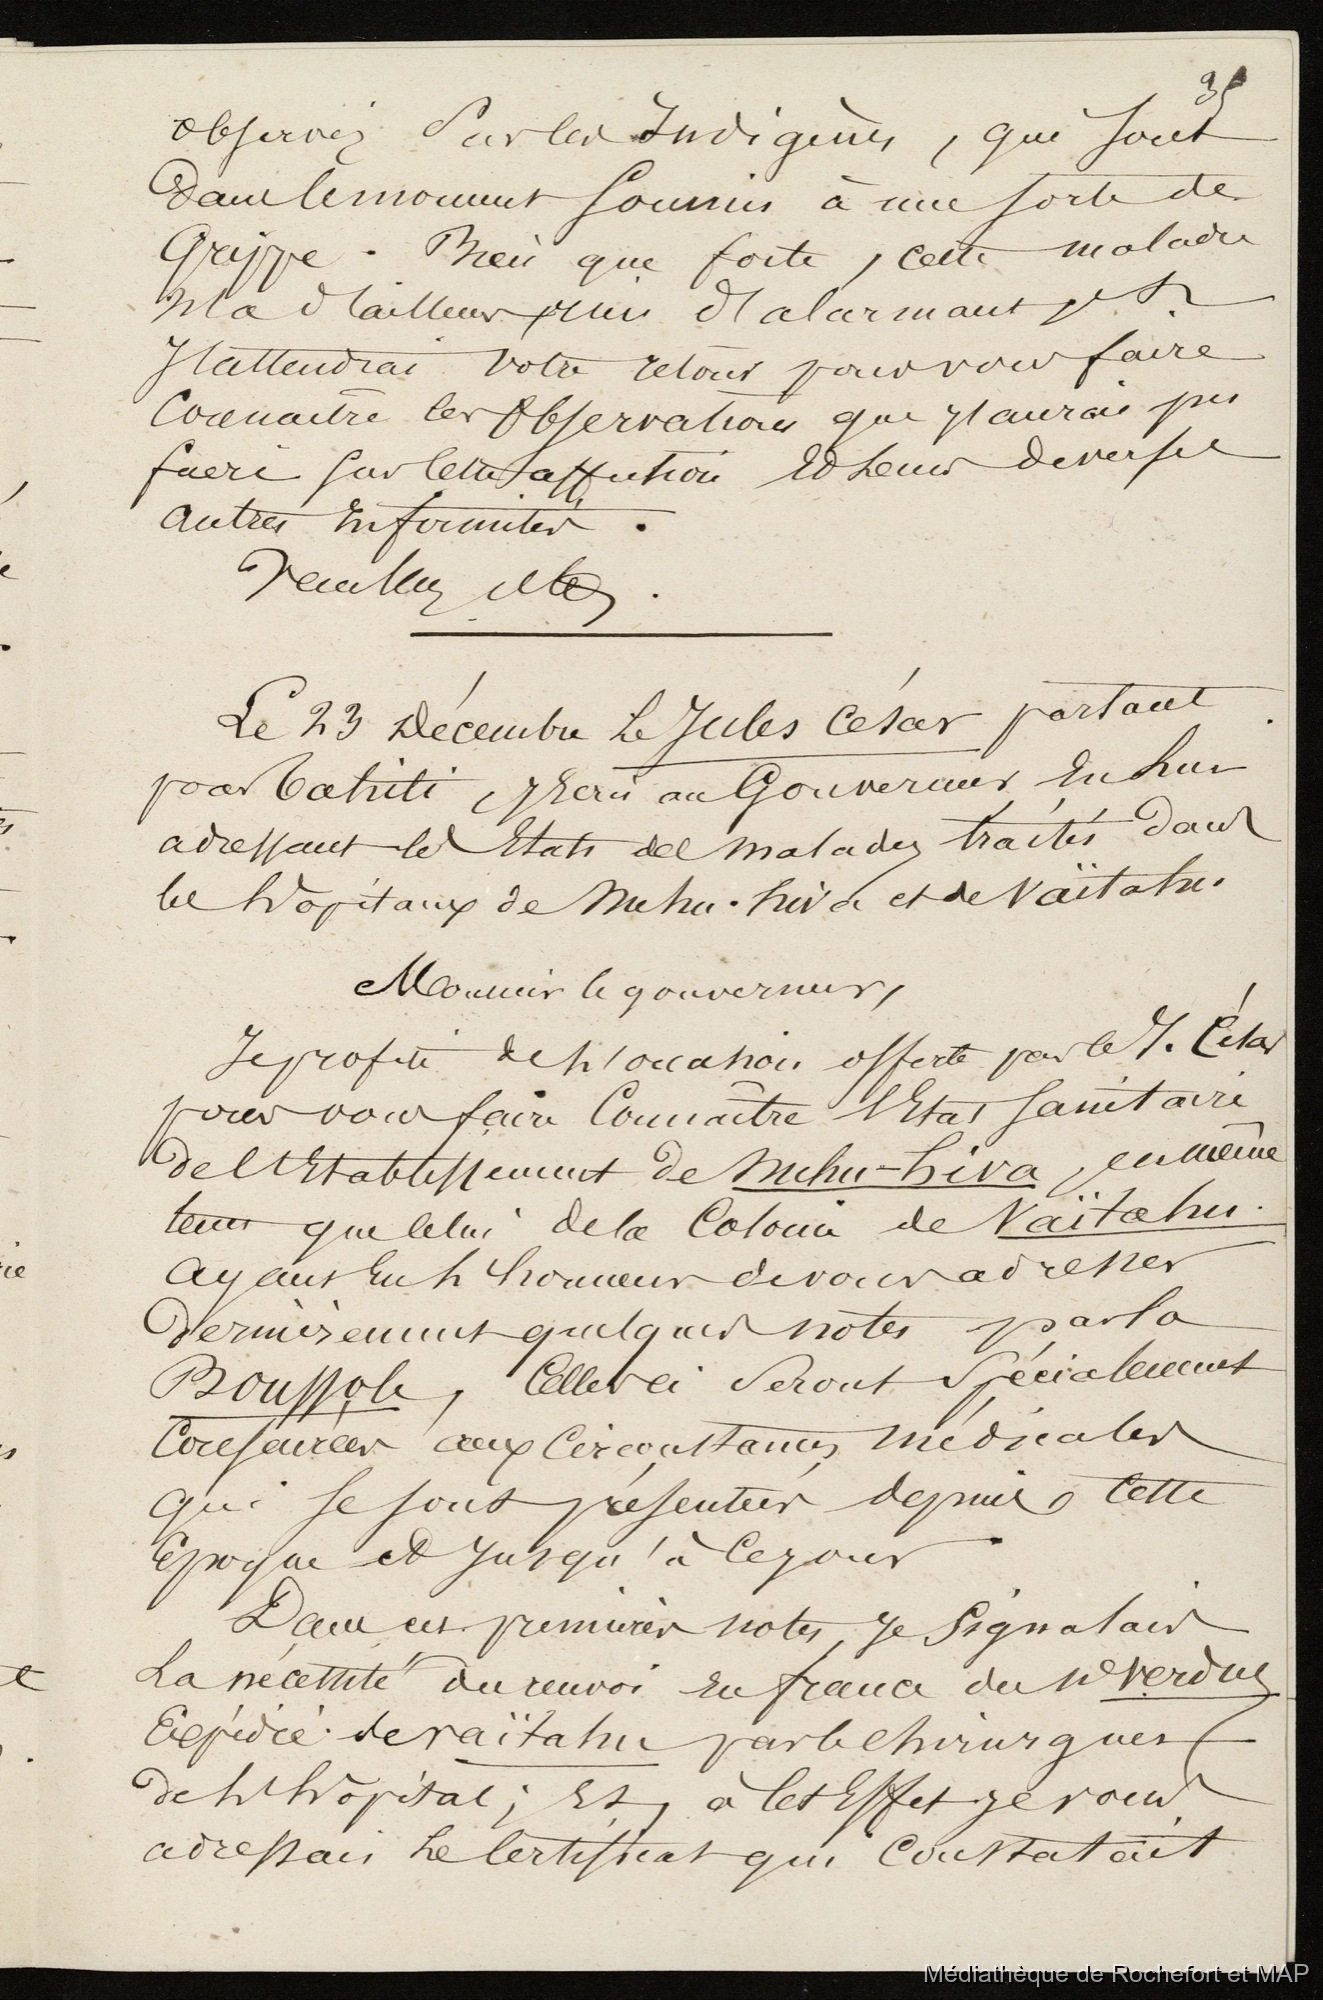 35
observés sur les Indigènes, qui sont
dans le moment soumis à une sorte de
Grippe. Bien que forte, cette maladie
n'a d'ailleurs rien d'alarmant.
J'attendrai votre retour pour vous faire
Connaître les Observations que j'aurais pu
faire sur cette affection et leurs diverses
autres infirmités.
Veuillez etc.
Le 23 Décembre le Jules César partant
pour Tahiti, j'Ecris au Gouverneur en lui
adressant les Etats des malades traités dans
les hôpitaux de Nuhu-hiva et de Vaïtahu.
Monsieur le gouverneur,
Je profite de l'occasion offerte par le J. César
pour vous faire Connaître l'Etat sanitaire
de l'Etablissement de Nuhu-hiva, en même
tems que celui de la Colonie de Vaïtahu.
Ayant Eu l'honneur de vous adresser
dernièrement quelques notes par la
Boussole, Celles ci seront Spécialement
Consacrées aux Circonstances médicales
qui se sont présentées depuis cette
Epoque et Jusqu'à ce jour
Dans ces premières notes, Je Signalais
La nécessité du renvoi En france du Né Verdus
Expédié de vaïtahu par le chirurgien
de l'hôpital; Et, à cet Effet je vous
adressais le Certificat qui Constatait
Médiathèque de Rochefort et MAP